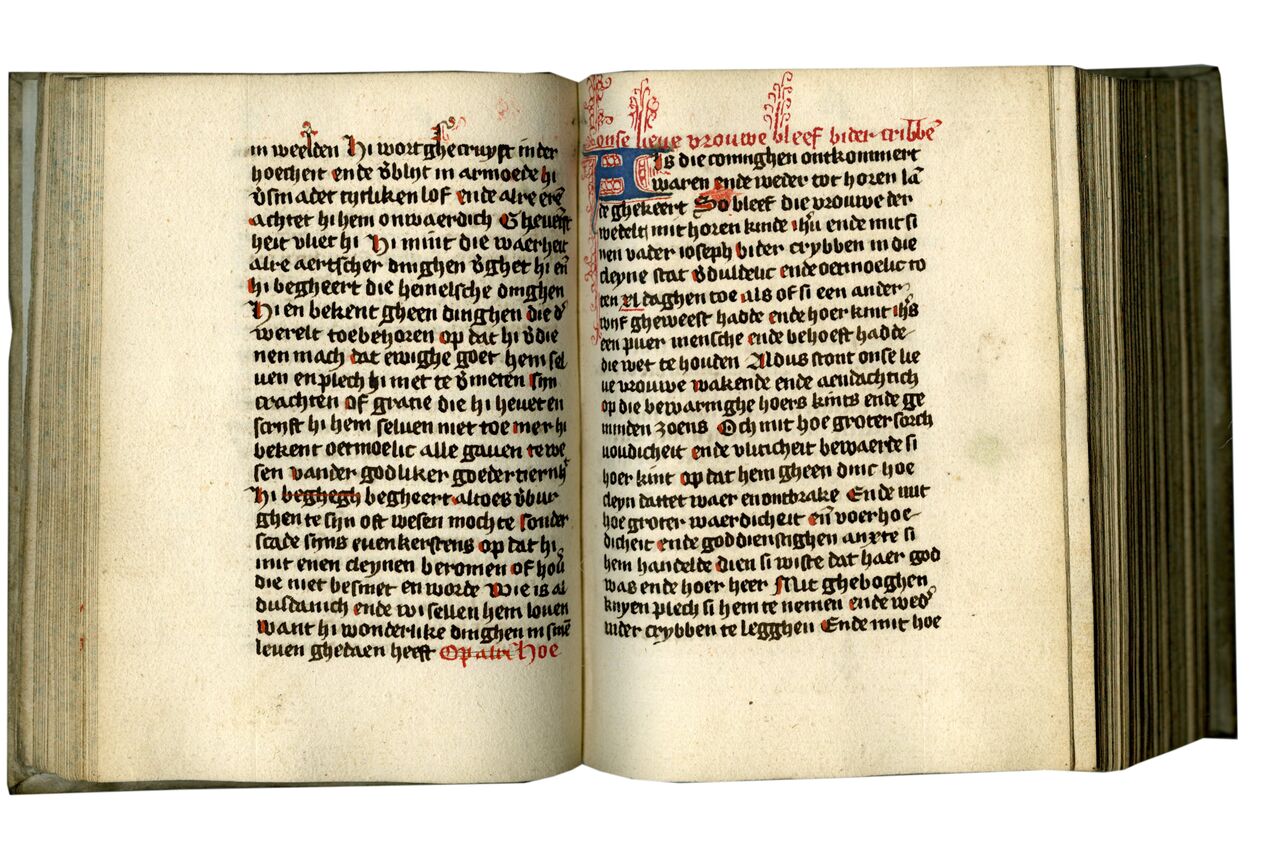 in weelden Hi wort ghecruyst in der
hoecheit ende v̄blijt in armoede hi
v̄smadet tytliken lof ende alre erē
achtet hi hem onwaerdich Gheueist
heit vliet hi Hi mint die waerheit
alre aertscher dinghen v̄ghet hi eñ
hi begheert die hemelsche dinghen
Hi en bekent gheen dinghen die d'
werelt toebehoren op dat hi v̄die
nen mach dat ewighe goet hem sel
uen en plech hi niet te v̄meten sijn
crachten of gracie die hi heuet en
scrijft hi hem seluen niet toe mer hi
bekent oetmoelic alle gauen te we
sen vander godliker goedertiernh'
hi beghegh begheert altoes v̄bor
ghen te sijn oft wesen mochte sonder
scade sijns euenkerstens op dat hi
mit enen cleynen beromen of hoū
die niet besmet en worde Wie is al
dusdanich ende wi sellen hem louen
want hi wonderlike dinghen in sinē
leuen ghedaen heeft Op alre Hoe
onse lieue vrouwe bleef bider cribbē
Als die coninghen ontkommert
waren ende weder tot horen lā
de ghekeert So bleef die vrouwe der
werelt mit horen kinde ihū ende mit si
nen vader ioseph bider crybben in die
cleyne stat v̄duldelic ende oetmoelic to
ten xl daghen toe als of si een ander
wijf gheweest hadde ende hoer kint ihs
een puer mensche ende behoeft hadde
die wet te houden Aldus stont onse lie
ue vrouwe wakende ende aendachtich
op die bewaringhe hoers kints ende ge
minden zoens Och mit hoe groter sorch
uoudicheit ende vliticheit bewaerde si
hoer kint op dat hem gheen dinc hoe
cleyn dattet waer en ontbrake Ende mit
hoe groter waerdicheit eñ voerhoe
dicheit ende goddienstighen anxte si
hem handelde dien si wiste dat haer god
was ende hoer heer Mit gheboghen
knyen plech si hem te nemen ende wed'
inder crybben te legghen Ende mit hoe